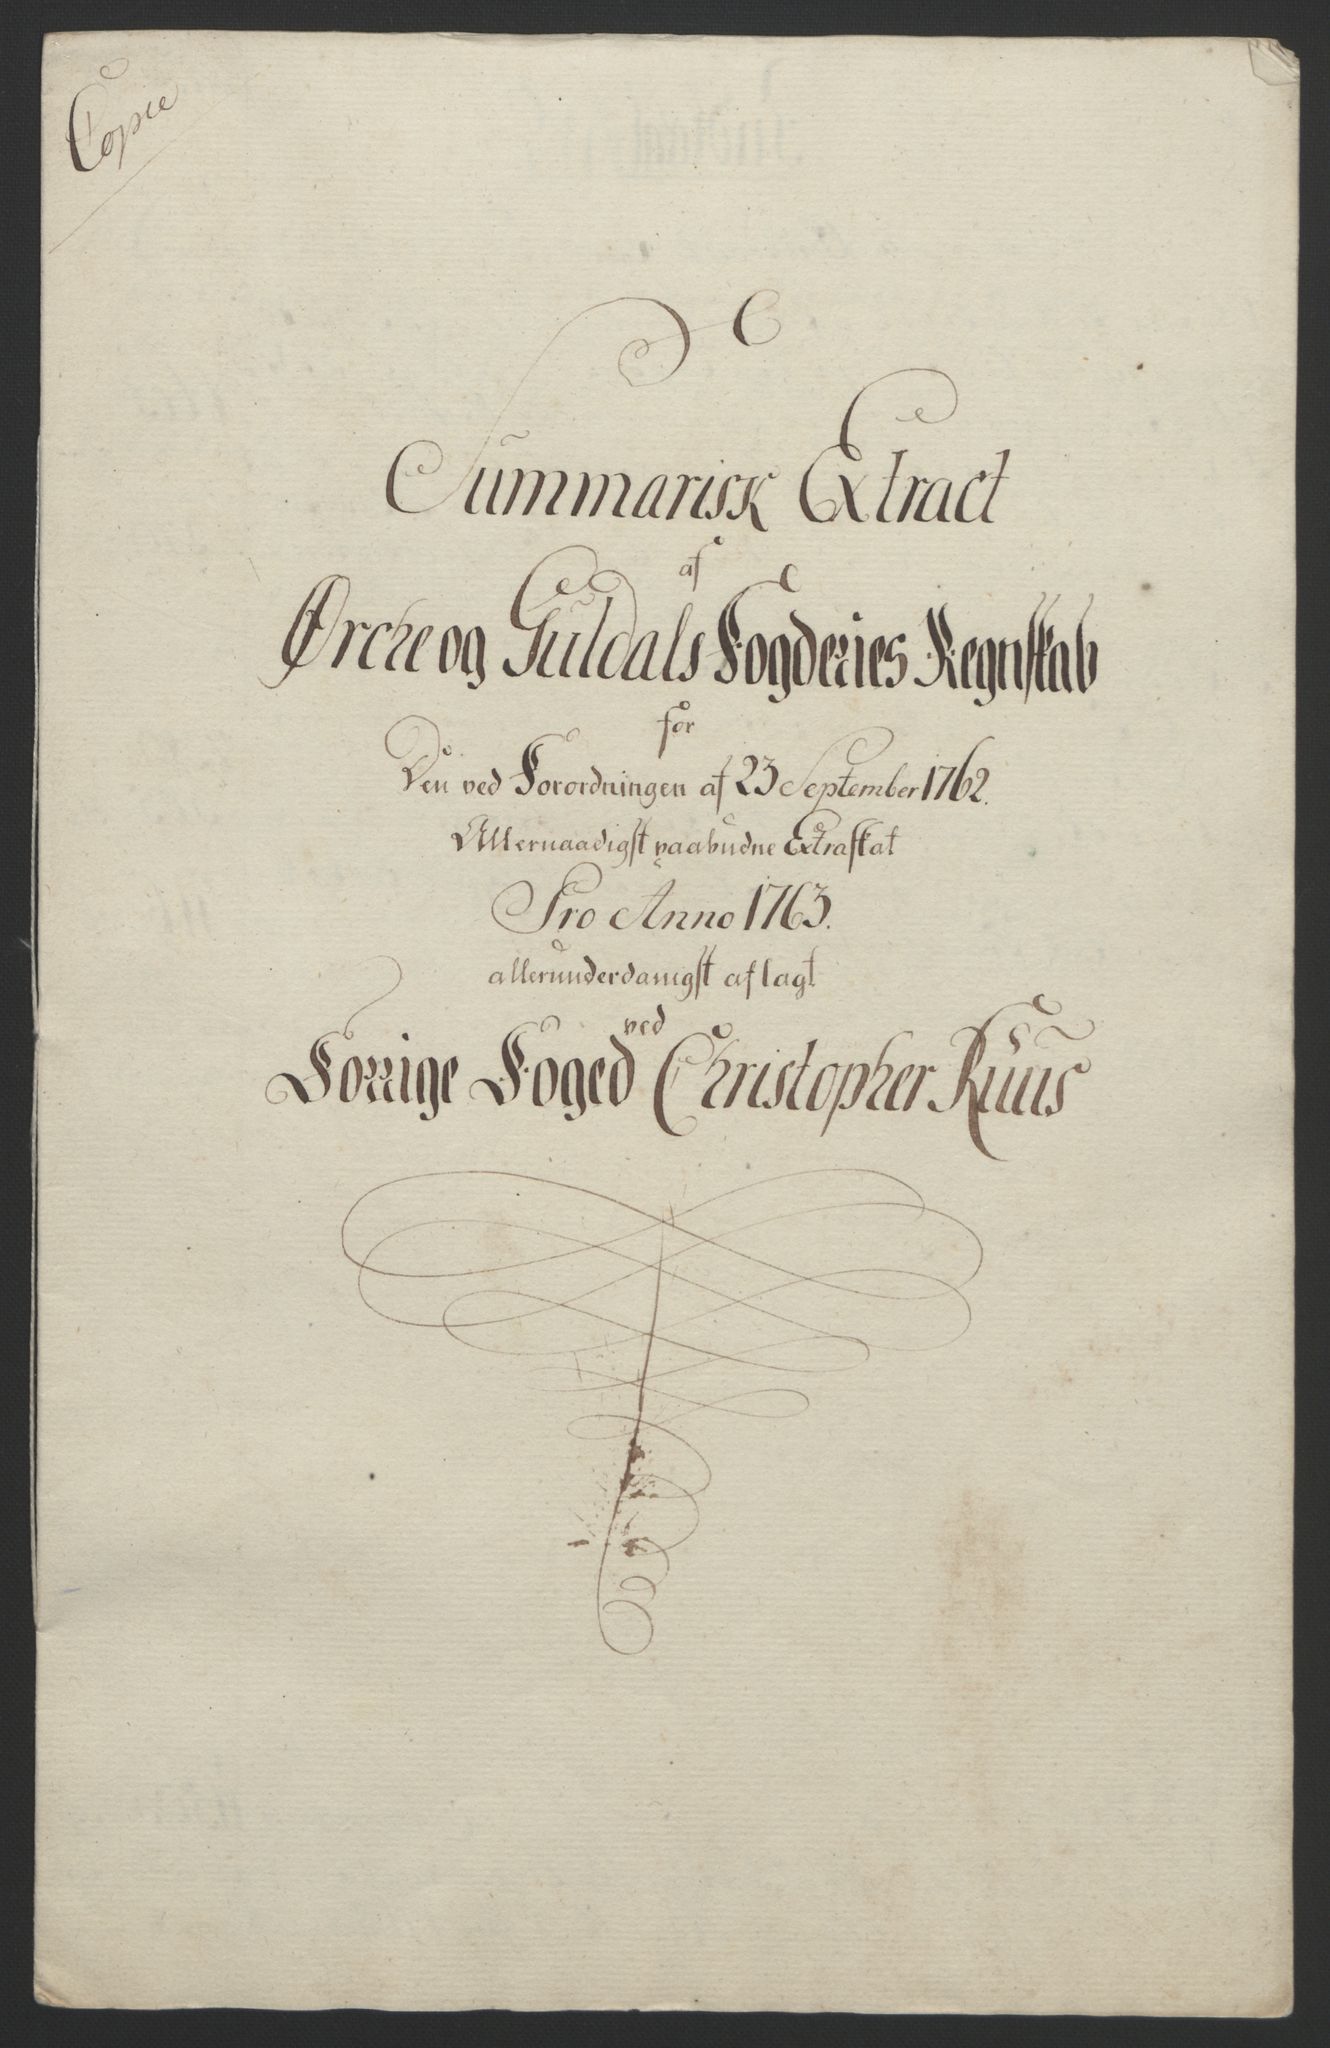 Copie
Summarisk Extract
af
Ørche og Guldals Fogderies Regnskab
for
Den ved Forordningen af 23 September 1762.
Allernaadigst paabudne Extraskat
Pro Anno 1763.
allerunderdanigst aflagt
ved
Forrige Foged Christopher Ruus